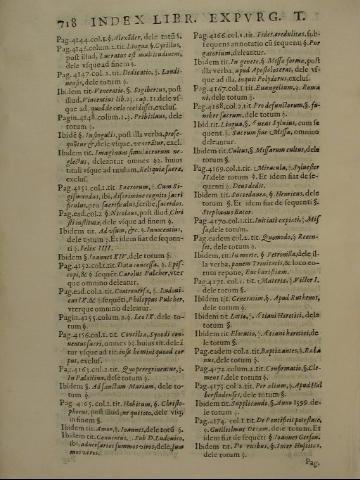 718 INDEX LIBR. EXPVRG. T.
Pag. 4144. col. 1. §. Alexāder, dele totū §.
Pag. 4145. colum. 2. tit. Lingua, §. Cyrillus,
post illud, Lucratus est multitudinem,
dele vsque ad finem §.
Pag. 4147. col. 2. tit. Dedicatio, §. Laudi-
dele totum §.
Ibidem tit. Veneratio, §. Sigibertus, post
illud, Vincentius lib. 23. cap. dele vs-
que ad, quædā cele
Pagin. 4148. colum. 1. §. Pribislaus, dele
totum §.
Ibidē §. In singulis, post illa verba, prose-
quitur &, dele vsque, veneratur, excl.
Ibidem tit. Imaginum simulacrorum ne-
glectus, deleatur omnes 12. huius
tituli vsque ad tandem, Reliquiæ sacræ,
exclus.
Pag. 4151. col. 2. tit. Sacrorum, §. Cum Si-
gismundus, ibi, discrimine cognito sacri-
ficulus, pro sacrificulus, scribe, sacerdos.
Pag. ead. col. 2. §. Nicolaus, post illud, Chri
sti institute, dele vsque ad finem §.
Ibidem tit. Aduersus, &c. §. Innocentius,
dele totum §. Et idem fiat de sequen-
ti §. Felix IIII.
Ibidem §. Ioannes XIV. dele totum §.
Pag. 4152. col. 2. tit. Data concessa. §. Epis-
copi, & §. sequēti Carolus Pulcher, vter
que omnino deleatur.
Pag. ead. col. 2. tit. Contradicta, §. Ludoui-
cus IX. & §. sequēti, Philippus Pulcher,
vterque omnino deleatur.
Pagin. 4155. colum. 2. §. Leo IX. dele to-
tum §.
Pag. 4156. col. 2. tit. Concilia, Synodi con-
uentus sacri, omnes 22. huius tit. delea
tur vsque ad tit. ipse homini quod cor-
pus, exclus.
Pag. 4163. colum. 2. tit. Quæ peregrinantur, §.
In Palæstinam, dele totum §.
Ibidem §. Ad sanctam Mariam, dele to-
tum §.
Pag. 4165. col. 2. tit. Habitum, §. Christo-
phorus, post illud, ne quiceto, dele vsq;
in finem §.
Ibidem tit. Amor, §. Ioannes, dele totū §.
Ibidem tit. Conuentus, §. Sub D. Ludouico,
ibi, aduersarios summos viros, dele, sum
mos viros.
Pag. 4166. col. 2. tit. Fides credulitas, sub-
sequens annotatio cū sequenti §. Por
gatorium, deleatur.
Ibidem tit. In genere, §. Missæ formæ, post
illa verba, apud Apostolorum, dele vs-
que ad illa, inquit Polydorus, exclus.
Pag. 4167. col. 1. tit. Euangelium, §. Roma
ni, dele totum §.
Pag. 4168. col. 2. tit. Pro defunctorum, §. fu-
nebre sacrum, dele totum §.
Ibid. tit. Lingua, §. Aeneas Syluius, cum se
quenti §. Sacrum siue Missa, omnino
deleantur.
Ibidem tit. Cultus, §. Missarum cultus, dele
totum §.
Pag. 4169. col. 2. tit. Miracula, §. Syluester
II. dele totum §. Et idem fiat de se-
quenti §. Deusdedit.
Ibidem tit. Sacerdotum, §. Henricus, dele
totum §. Et idem fiat de sequenti §.
Stephanus Rutor.
Pag. 4170. col. 1. tit. Initiati expiati, §. Mis-
sa, dele totum §.
Pag. eadem col. 2. tit. Quomodo, §. Recen-
se, dele totum §.
Ibidem, §. Petronilla, dele il-
la verba, panem Trinitatis, & loco eo-
rum repone, Eucharistiam.
Pag. 4171. col. 1. tit. Materies, §. Victor I.
dele totum §.
Ibidem tit. Generatim, §. Apud Ruthenos,
dele totum §.
Ibidem tit. Loria, §. Ariani Heretici, dele
totum §.
Ibidem tit. Historia, §. Ariani heretici, de
le totum §.
Pag. eadem col. 2. tit. Baptizantes, §. Raba
nus, dele totum §.
Pag. 4172. colum. 2. tit. Confirmatio, §. Cle-
mens I. dele totum §.
Pag. 4173. col. 2. tit. Per alium, §. Apud Hal
berstadenses, dele totum §.
Ibidem tit. Supplicando, §. Anno 1599. de-
le totum §.
Pag. 4174. col. 1. tit. De Pontificis potestate,
§. Guilielmus Ocram, dele totum. Et
idem fiat de sequēti §. Ioannes Gerson.
Ibidem tit. De rectibus, §. Inter Hussitas,
dele totum §.
Pag.